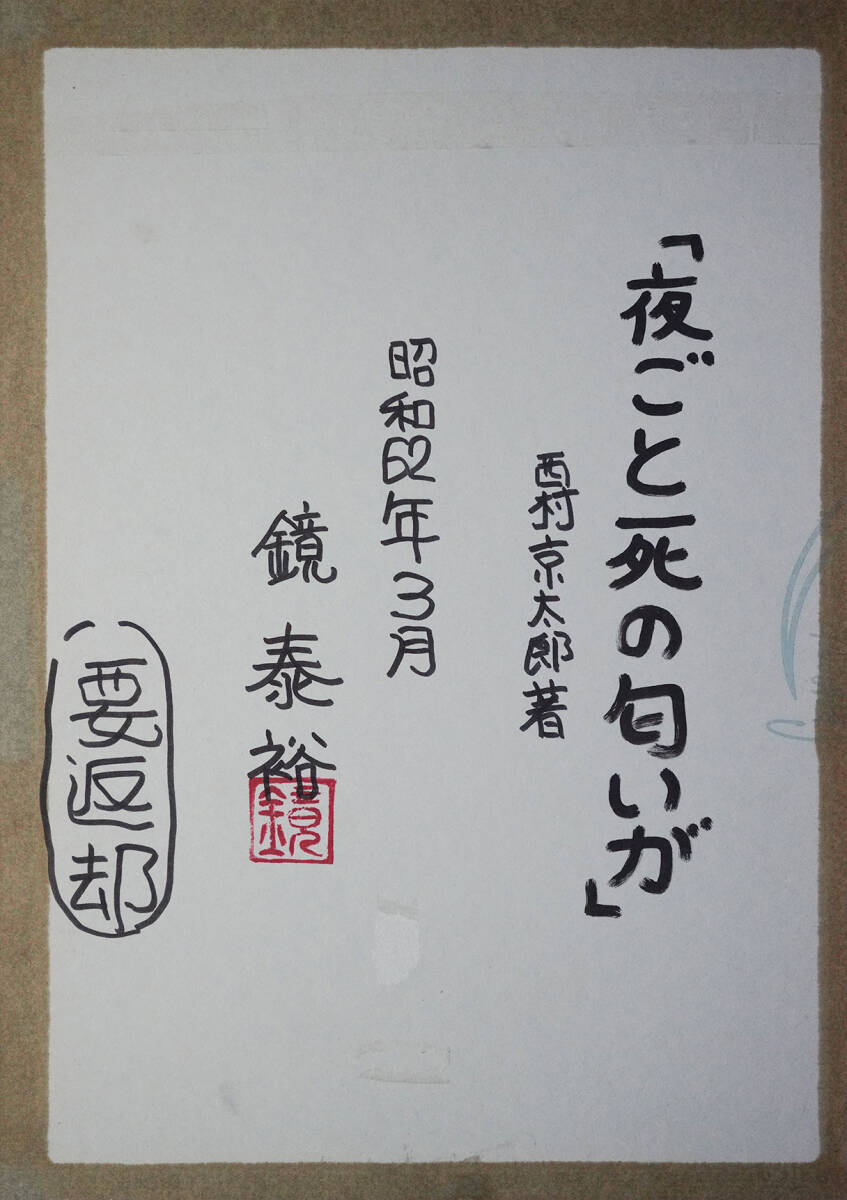 「夜ごと死の匂いが」
西村京太郎著
昭和62年3月
鏡泰裕
鏡
要返却